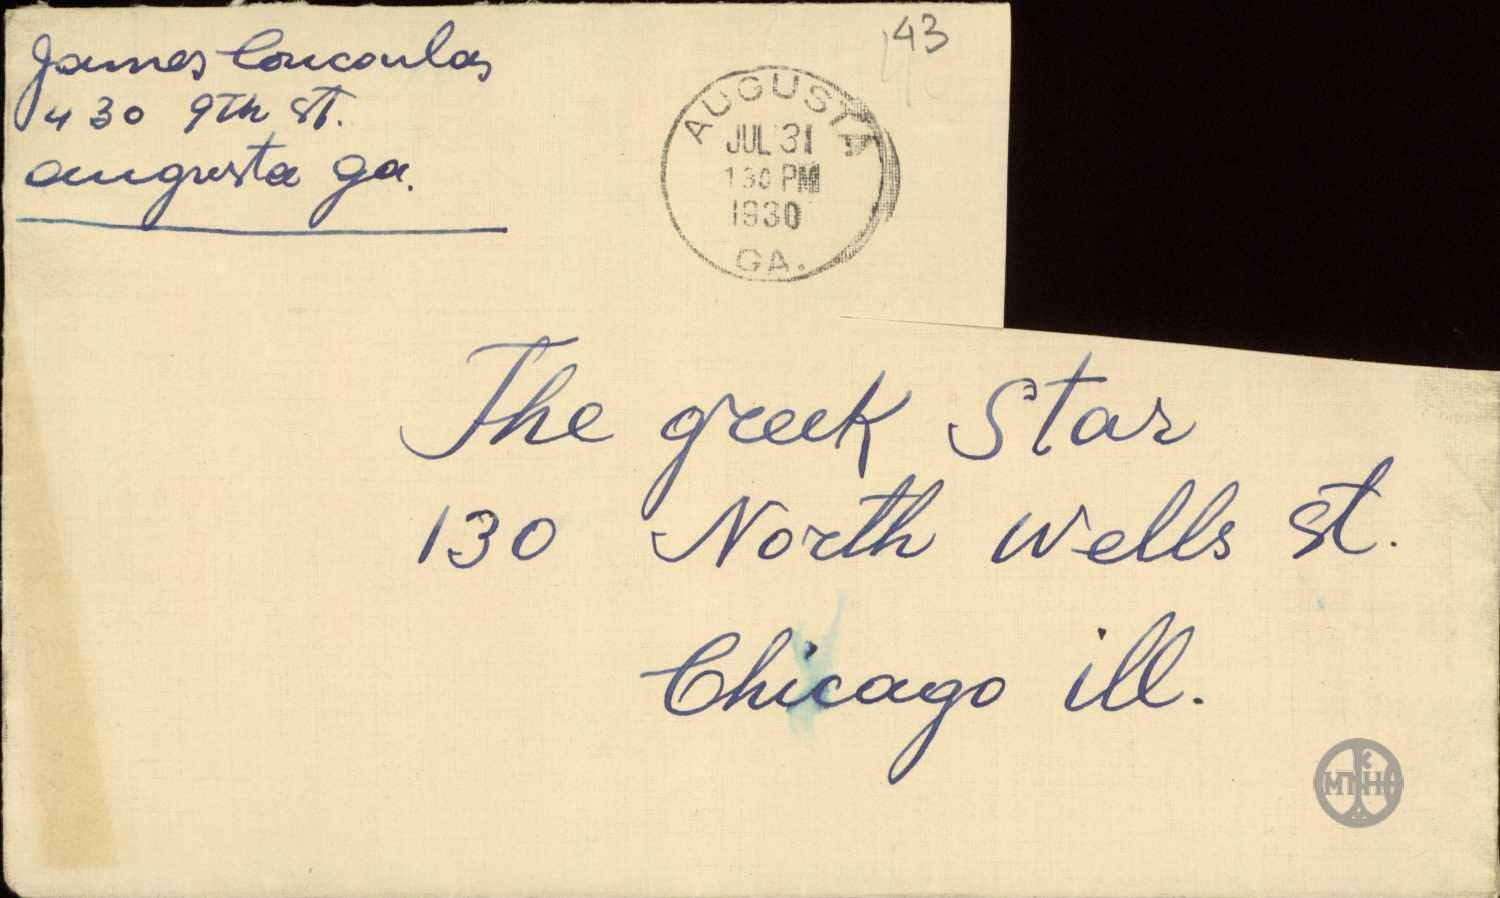 James Coucoulas
430 9Th St.
augusta ga.
43
AUGUSTA
JUL 31
130 PM
1930
GA.
The greek Star
130 North Wells St.
Chicago ill.